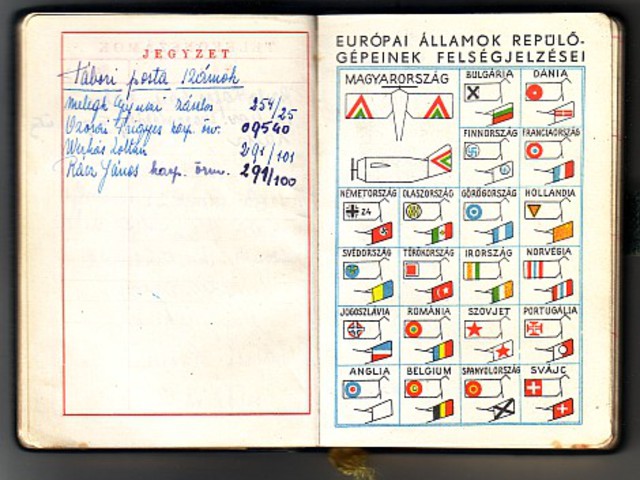 JEGYZET
Tábori posta számok
Melegh Gyulai zászlos 254/25
Ozorai Frigyes karp. őrv. 09540
Weisz Zoltán 291/101
Rácz János karp. őrm. 291/100
EURÓPAI ÁLLAMOK REPÜLŐ-
GÉPEINEK FELSÉGJELZÉSEI
MAGYARORSZÁG BULGÁRIA DÁNIA
FINNORSZÁG FRANCIAORSZÁG
NÉMETORSZÁG OLASZORSZÁG GÖRÖGORSZÁG HOLLANDIA
24
SVÉDORSZÁG TÖRÖKORSZÁG IRORSZÁG NORVÉGIA
JOGOSZLÁVIA ROMÁNIA SZOVJET PORTUGÁLIA
ANGLIA BELGIUM SPANYOLORSZÁG SVÁJC